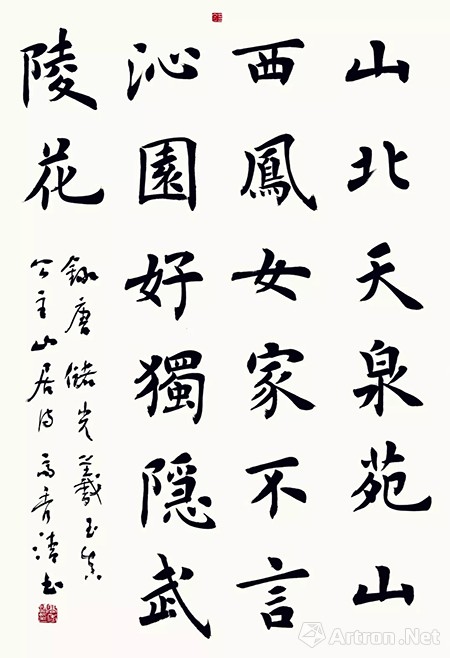 山北天泉苑山
西鳳女家不言
沁園好獨隐武
陵花
錄唐儲光羲玉真
公主山居诗 高清书
Artron.Net